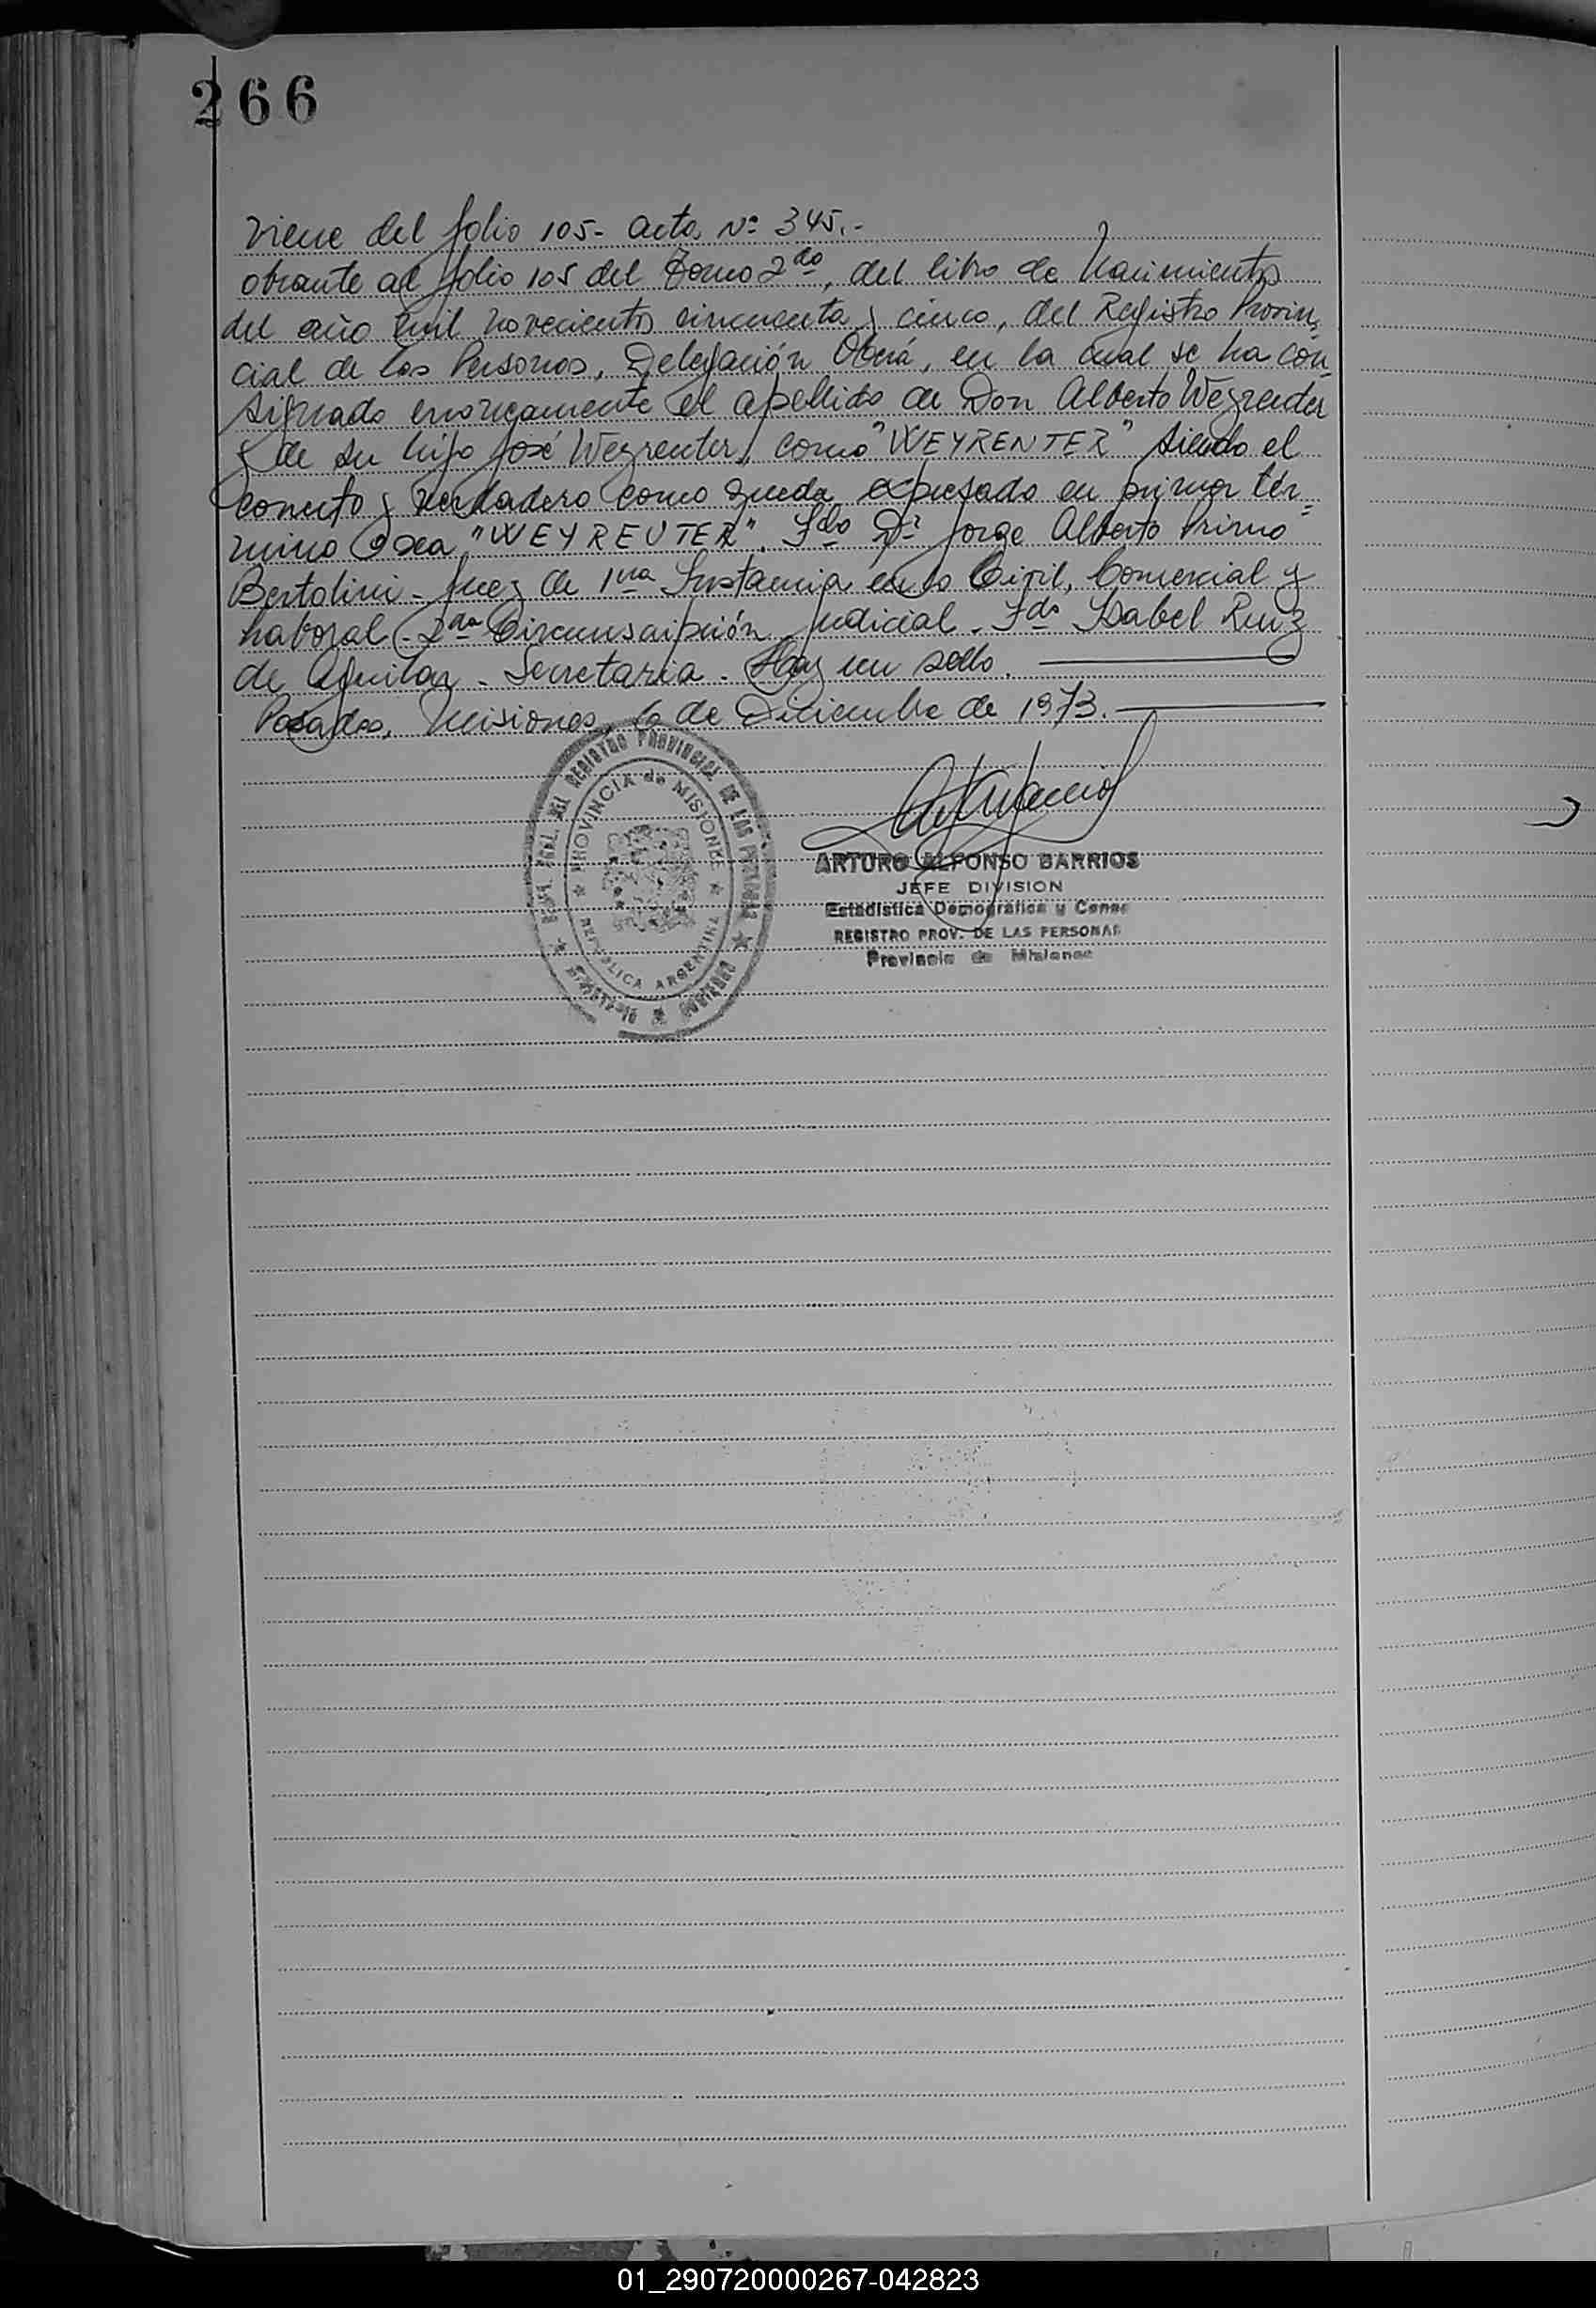 266
Viene del folio 105- acta Nº 345.-
obrante al folio 105 del Tomo 2do, del libro de Nacimientos
del año mil novecientos cincuenta y cinco, del Registro Provin
cial de las Personas, Delegación Oberá, en la cual se ha con
signado erróneamente el apellido de Don Alberto Weyreuter
y de su hijo José Weyreuter, como "WEYRENTER" siendo el
correcto y verdadero como queda expresado en primer tér=
mino o sea "WEYREUTER". Fdo Dr Jorge Alberto Primo
Bertolini - Juez de 1ra Instancia en lo Civil, Comercial y
Laboral - 2da Circunscripción Judicial - Fdo Isabel Ruiz
de Aguilar - Secretaria - Hay un sello.
Posadas, Misiones, 6 de Diciembre de 1973.
REGISTRO PROVINCIAL DE LAS PERSONAS
PROVINCIA de MISIONES
REPUBLICA ARGENTINA
ARTURO ALFONSO BARRIOS
JEFE DIVISION
Estadística Demográfica y Censo
REGISTRO PROV. DE LAS PERSONAS
Provincia de Misiones
01_290720000267-042823